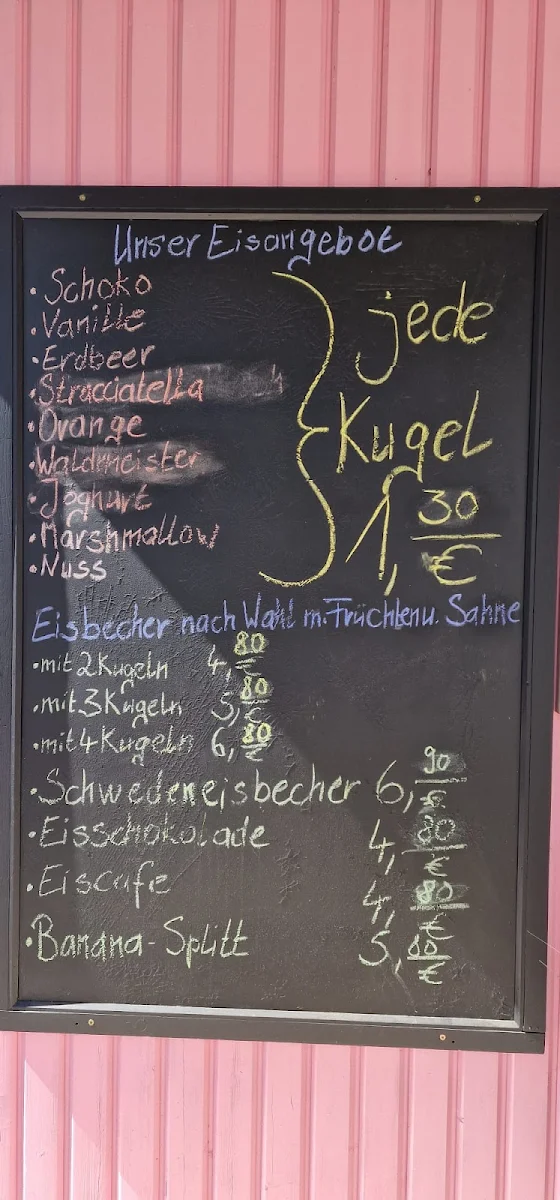 Unser Eisangebot
· Schoko
· Vanille
· Erdbeer
· Stracciatella
· Orange
· Waldmeister
· Joghurt
· Marshmallow
· Nuss
jede
Kugel
1,30 €
Eisbecher nach Wahl m. Früchten u. Sahne
· mit 2 Kugeln 4,80 €
· mit 3 Kugeln 5,80 €
· mit 4 Kugeln 6,80 €
· Schwedeneisbecher 6,90 €
· Eisschokolade 4,80 €
· Eiscafe 4,80 €
· Banana-Splitt 5,80 €